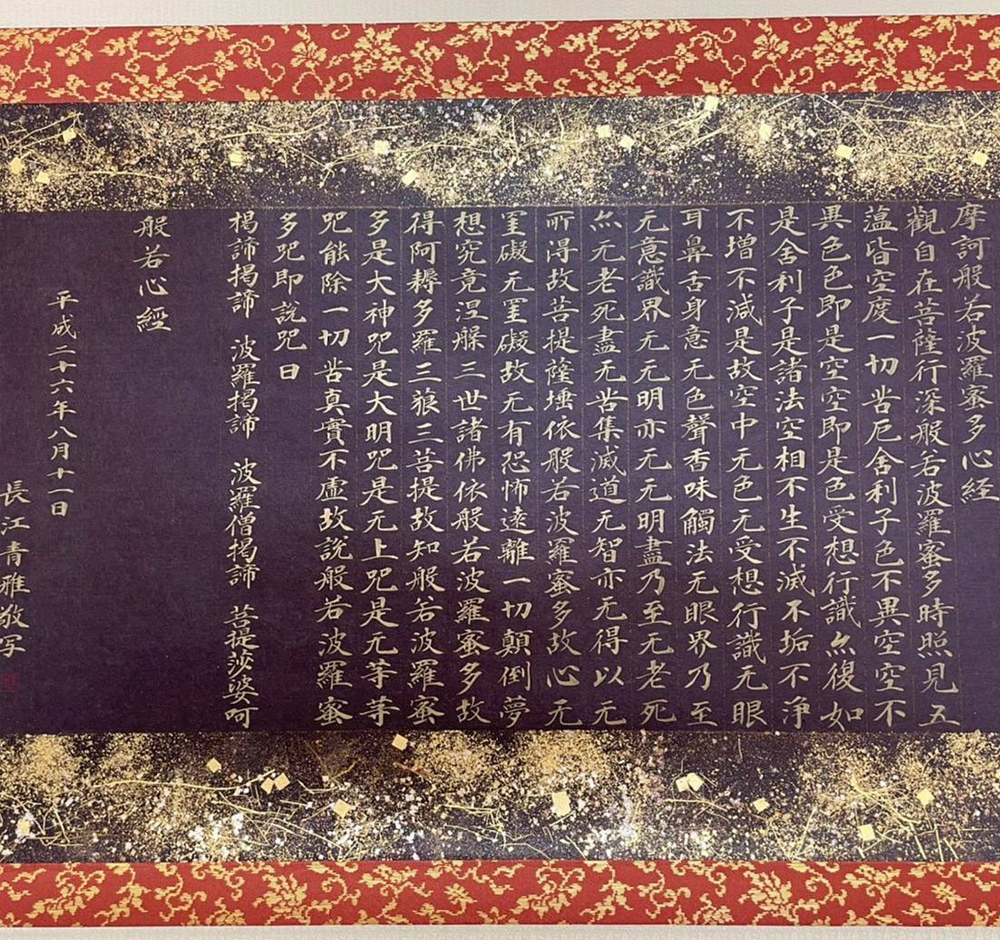 摩訶般若波羅蜜多心経
觀自在菩薩行深般若波羅蜜多時照見五
蘊皆空度一切苦厄舍利子色不異空空不
異色色即是空空即是色受想行識亦復如
是舍利子是諸法空相不生不滅不垢不淨
不增不減是故空中无色无受想行識无眼
耳鼻舌身意无色聲香味觸法无眼界乃至
无意識界无无明亦无无明盡乃至无老死
亦无老死盡无苦集滅道无智亦无得以无
所得故菩提薩埵依般若波羅蜜多故心无
罣礙无罣礙故无有恐怖遠離一切顛倒夢
想究竟涅槃三世諸佛依般若波羅蜜多故
得阿耨多羅三藐三菩提故知般若波羅蜜
多是大神咒是大明咒是无上咒是无等等
咒能除一切苦真實不虛故說般若波羅蜜
多咒即說咒曰
揭諦揭諦 波羅揭諦 波羅僧揭諦 菩提莎婆呵
般若心經
平成二十六年八月十一日
長江青雅敬写